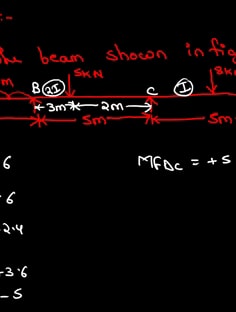 :-
the beam shown in fig
m B 2I 5KN C I 8KN
3m 2m
5m 5m
6 MFDC = +5
6
2.4
-3.6
-5